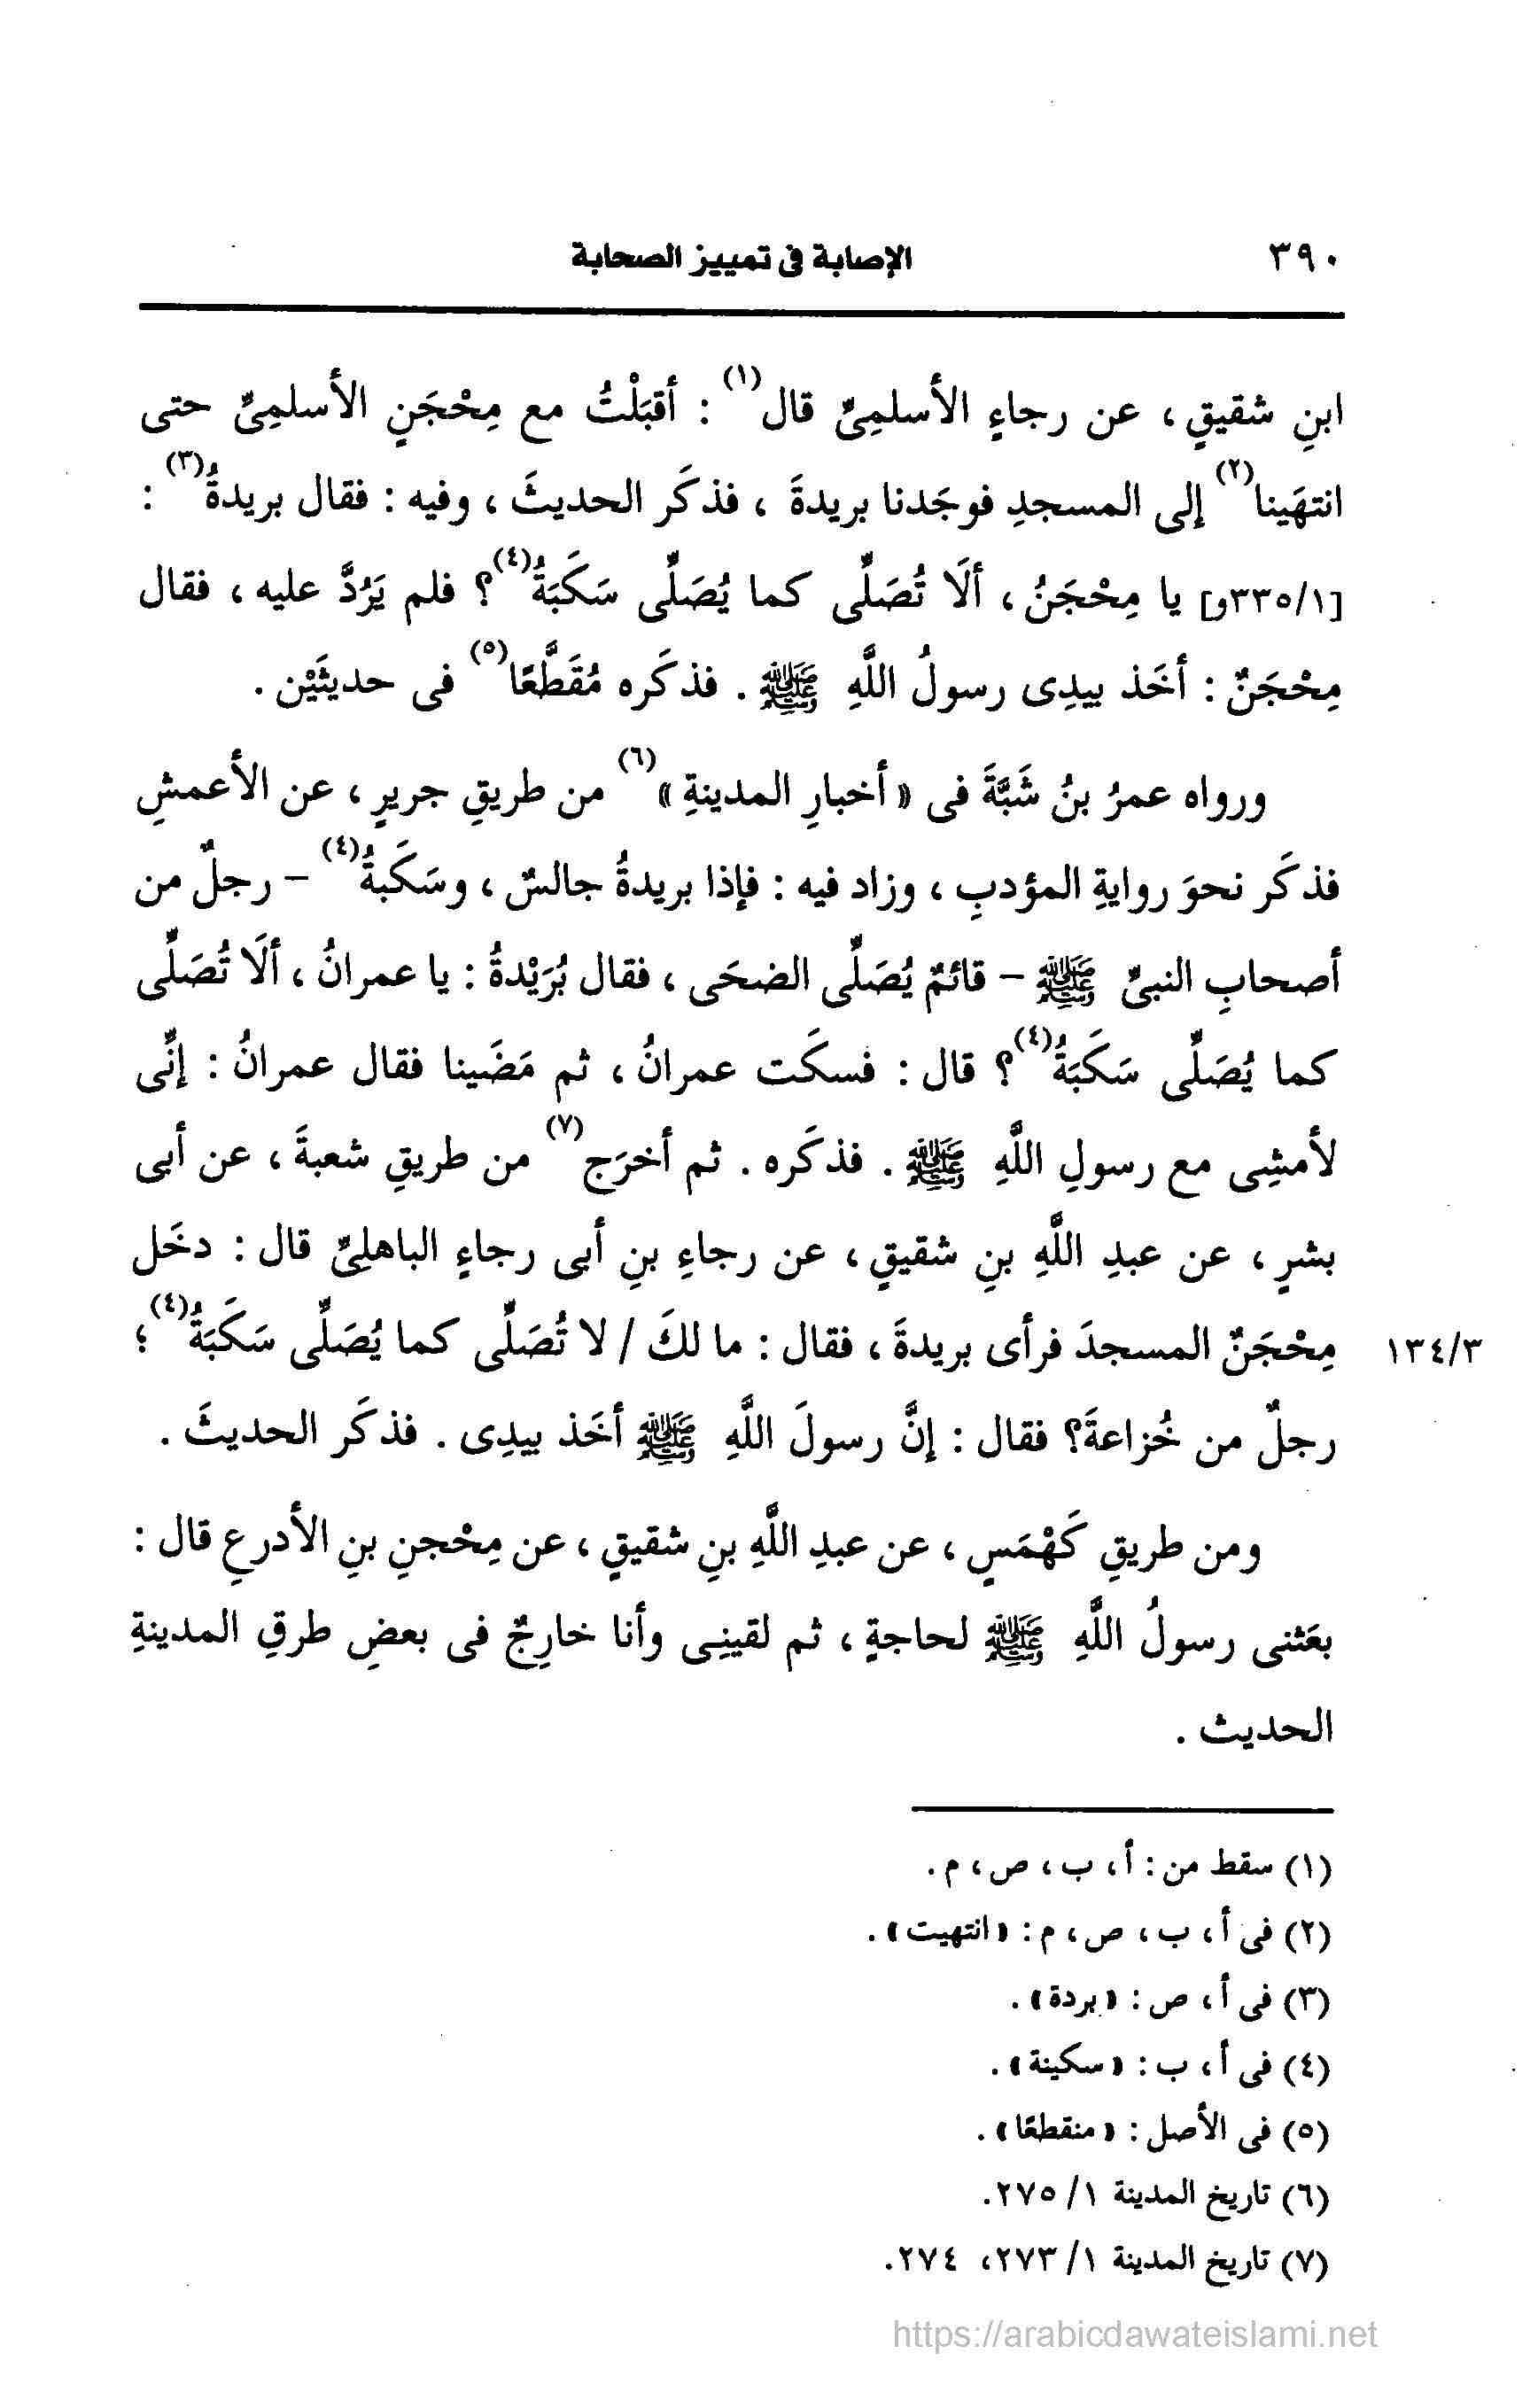 ٣٩٠ الإصابة فى تمييز الصحابة
ابنِ شقيقٍ ، عن رجاءٍ الأسلمِىِّ قال(١) : أقبَلْتُ مع مِحْجَنٍ الأسلمِىِّ حتى
انتهَينا(٢) إلى المسجدِ فوجَدنا بريدةَ ، فذكَر الحديثَ ، وفيه : فقال بريدةُ(٣) :
[٣٣٥/١و] يا مِحْجَنُ ، ألَا تُصَلِّى كما يُصَلِّى سَكَبَةُ(٤)؟ فلم يَرُدَّ عليه ، فقال
مِحْجَنٌ : أخَذ بيدِى رسولُ اللَّهِ ﷺ . فذكَره مُقَطَّعًا(٥) فى حديثَيْن .
ورواه عمرُ بنُ شَبَّةَ فى «أخبارِ المدينةِ»(٦) من طريقِ جريرٍ ، عن الأعمشِ
فذكَر نحوَ روايةِ المؤدبِ ، وزاد فيه : فإذا بريدةُ جالسٌ ، وسَكَبةُ(٤) – رجلٌ من
أصحابِ النبىِّ ﷺ – قائمٌ يُصَلِّى الضحَى ، فقال بُرَيْدةُ : يا عمرانُ ، ألَا تُصَلِّى
كما يُصَلِّى سَكَبَةُ(٤)؟ قال : فسكَت عمرانُ ، ثم مَضَينا فقال عمرانُ : إنِّى
لأمشِى مع رسولِ اللَّهِ ﷺ . فذكَره . ثم أخرَج(٧) من طريقِ شعبةَ ، عن أبى
بشرٍ ، عن عبدِ اللَّهِ بنِ شقيقٍ ، عن رجاءِ بنِ أبى رجاءٍ الباهلِىِّ قال : دخَل
١٣٤/٣ مِحْجَنٌ المسجدَ فرأى بريدةَ ، فقال : ما لكَ / لا تُصَلِّى كما يُصَلِّى سَكَبَةُ(٤) ؛
رجلٌ من خُزاعةَ؟ فقال : إنَّ رسولَ اللَّهِ ﷺ أخَذ بيدِى . فذكَر الحديثَ .
ومن طريقِ كَهْمَسٍ ، عن عبدِ اللَّهِ بنِ شقيقٍ ، عن مِحْجنِ بنِ الأدرعِ قال :
بعَثنى رسولُ اللَّهِ ﷺ لحاجةٍ ، ثم لقينِى وأنا خارِجٌ فى بعضِ طرقِ المدينةِ
الحديث .
(١) سقط من : أ ، ب ، ص ، م .
(٢) فى أ ، ب ، ص ، م : «انتهيت» .
(٣) فى أ ، ص : «بردة» .
(٤) فى أ ، ب : «سكينة» .
(٥) فى الأصل : «منقطعًا» .
(٦) تاريخ المدينة ١/ ٢٧٥.
(٧) تاريخ المدينة ١/ ٢٧٣، ٢٧٤.
https://arabicdawateislami.net